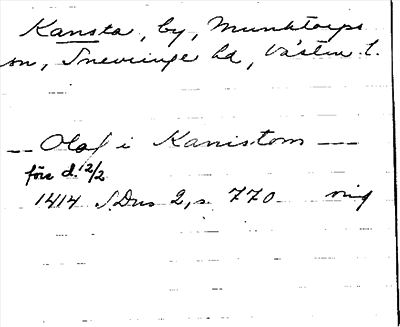 Kansta, by, Munktorps
sn, Snevringe hd, Västm. l.
-- Olaf i Kanistom --
före d. 12/2
1414 S.Dns 2, s. 770 orig